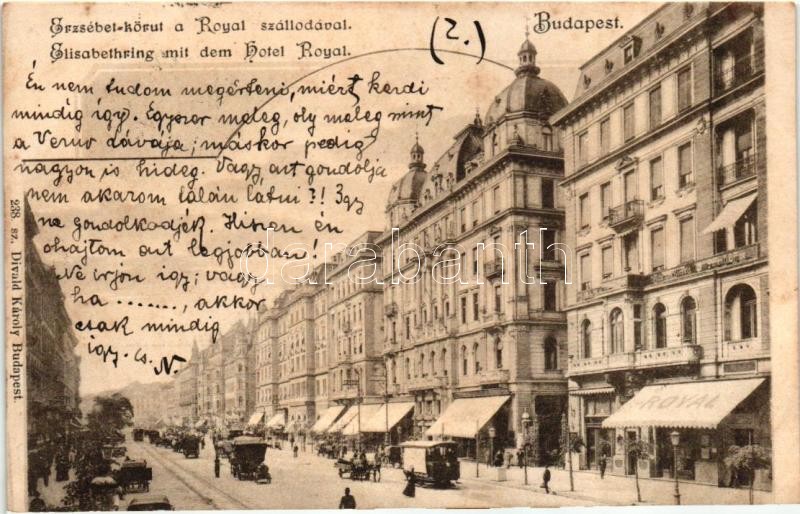 Erzsébet-körut a Royal szállodával.
Elisabethring mit dem Hotel Royal.
Budapest.
(2.)
Én nem tudom megérteni, miért kerdi
mindig így. Egyszer meleg, oly meleg mint
a Veruv lávája; máskor pedig
nagyon is hideg. Vagy azt gondolja
nem akarom látni?! Igy
ne gondolkodjék. Hiszen én
ohajtom azt legjobban!
Ne irjon igy; vagy
ha ......., akkor
csak mindig
igy. cs. N.
darabanth.com
ROYAL
238. sz. Divald Károly Budapest.